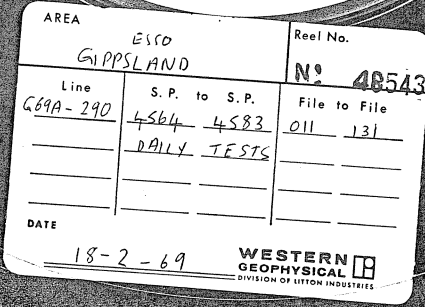 AREA
ESSO
GIPPSLAND
Reel No.
No 48543
Line S.P. to S.P. File to File
G69A-290 4564 4583 011 131
DAILY TESTS
DATE
18-2-69
WESTERN
GEOPHYSICAL
DIVISION OF LITTON INDUSTRIES